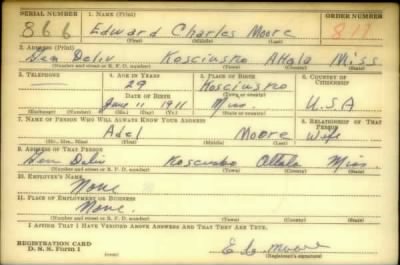 SERIAL NUMBER
1. NAME (Print)
ORDER NUMBER
866
Edward Charles Moore
817
(First) (Middle) (Last)
2. ADDRESS (Print)
Gen Deliv Kosciusko Attala Miss
(Number and street or R. F. D. number) (Town) (County) (State)
3. TELEPHONE
4. AGE IN YEARS
5. PLACE OF BIRTH
6. COUNTRY OF CITIZENSHIP
29
Kosciusko
DATE OF BIRTH
(Town or county)
June 11 1911
Miss.
U.S.A
(Exchange) (Number)
(Mo.) (Day) (Yr.)
(State or country)
7. NAME OF PERSON WHO WILL ALWAYS KNOW YOUR ADDRESS
8. RELATIONSHIP OF THAT PERSON
Adel Moore Wife
(Mr., Mrs., Miss) (First) (Middle) (Last)
9. ADDRESS OF THAT PERSON
Gen Deliv Koscusko Attala Miss.
(Number and street or R. F. D. number) (Town) (County) (State)
10. EMPLOYER'S NAME
None
11. PLACE OF EMPLOYMENT OR BUSINESS
None.
(Number and street or R. F. D. number) (Town) (County) (State)
I AFFIRM THAT I HAVE VERIFIED ABOVE ANSWERS AND THAT THEY ARE TRUE.
REGISTRATION CARD
D. S. S. Form 1
Ed. Moore
(Registrant's signature)